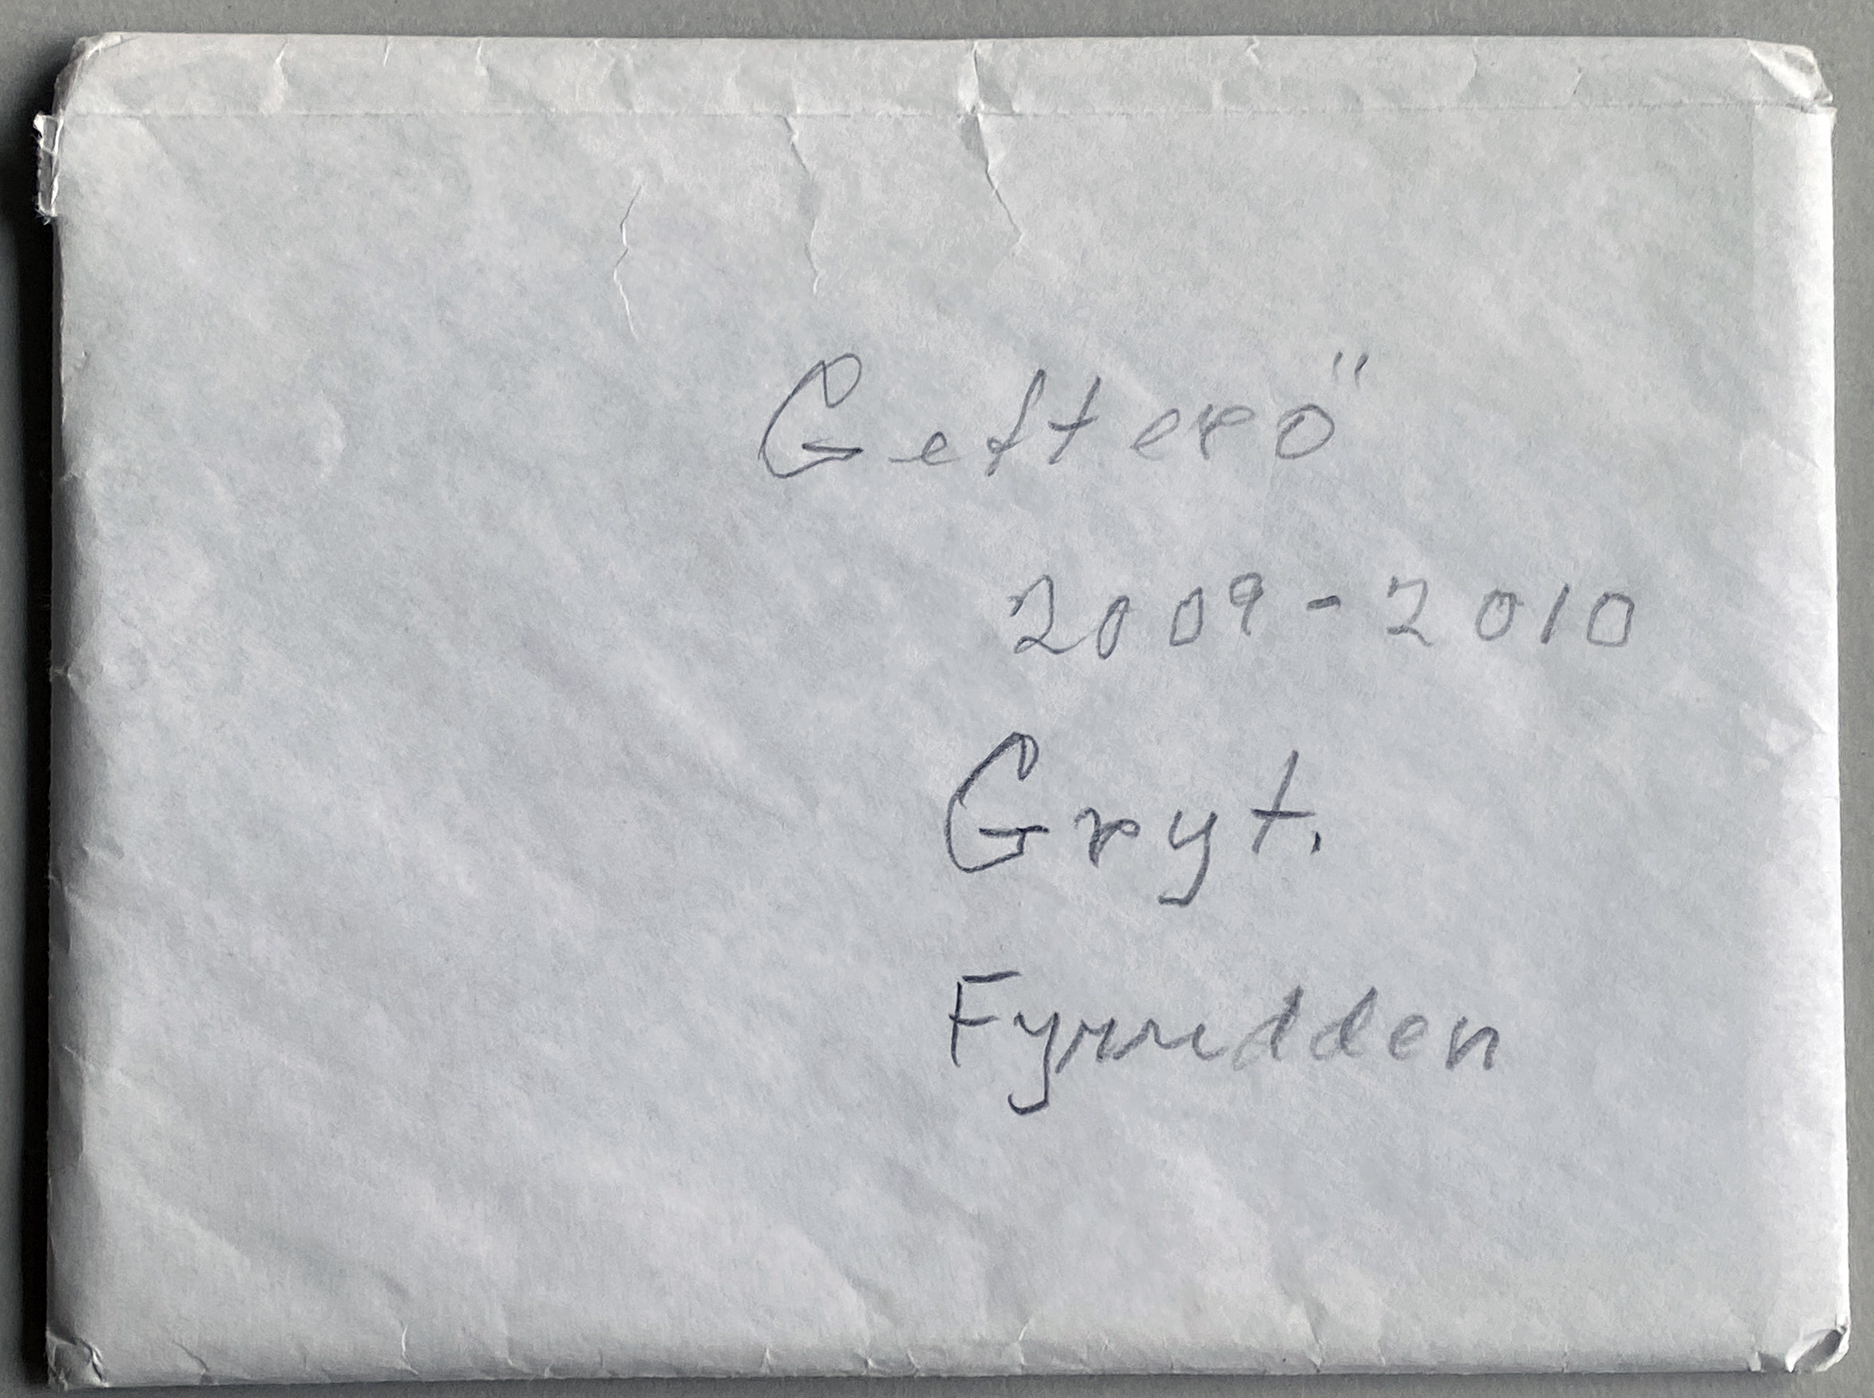 Gefterö
2009-2010
Gryt.
Fyrudden